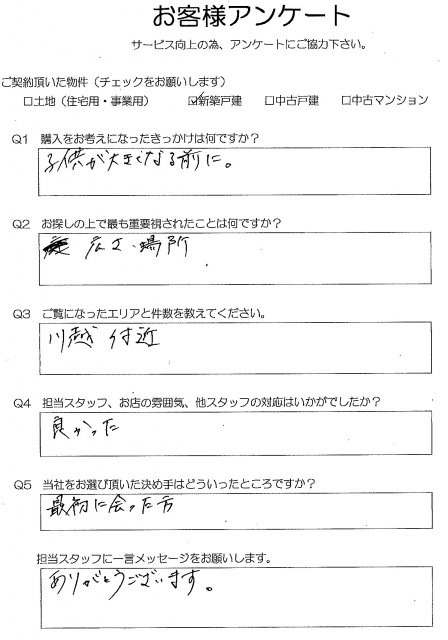 お客様アンケート
サービス向上の為、アンケートにご協力下さい。
ご契約頂いた物件（チェックをお願いします）
□土地（住宅用・事業用） ☑新築戸建 □中古戸建 □中古マンション
Q1 購入をお考えになったきっかけは何ですか？
子供が大きくなる前に。
Q2 お探しの上で最も重要視されたことは何ですか？
広さ、場所
Q3 ご覧になったエリアと件数を教えてください。
川越 付近
Q4 担当スタッフ、お店の雰囲気、他スタッフの対応はいかがでしたか？
良かった
Q5 当社をお選び頂いた決め手はどういったところですか？
最初に会った方
担当スタッフに一言メッセージをお願いします。
ありがとうございます。